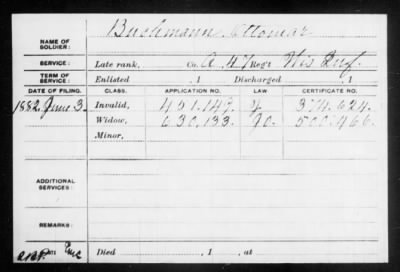 NAME OF SOLDIER: Buchmann, Ottomar
SERVICE: Late rank, Co. A, 47 Reg't Wis Inf.
TERM OF SERVICE: Enlisted , 1 Discharged , 1
DATE OF FILING. CLASS. APPLICATION NO. LAW CERTIFICATE NO.
1882, June 3. Invalid, 451.149. 374.624.
Widow, 630.133. 90. 500.466.
Minor,
ADDITIONAL SERVICES:
REMARKS:
Died , 1 , at